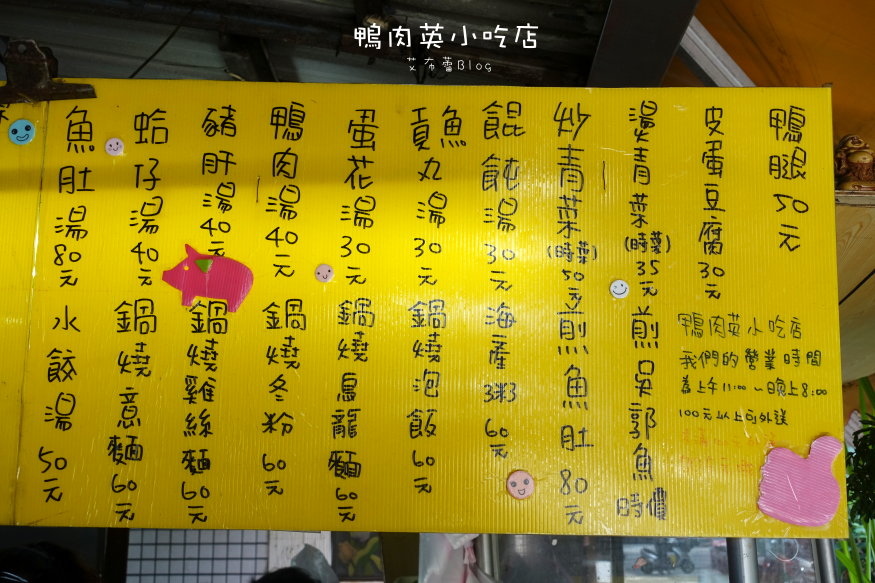 鴨肉英小吃店
艾布蕾Blog
鴨腿50元
皮蛋豆腐30元
燙青菜(時菜)35元
煎吳郭魚時價
炒青菜(時菜)50元
煎魚肚80元
餛飩湯30元
海產粥60元
貢魚丸湯30元
鍋燒泡飯60元
蛋花湯30元
鍋燒烏龍麵60元
鴨肉湯40元
鍋燒冬粉60元
豬肝湯40元
鍋燒雞絲麵60元
蛤仔湯40元
鍋燒意麵60元
魚肚湯80元
水餃湯50元
鴨肉英小吃店
我們的營業時間
為上午11:00~晚上8:00
100元以上可外送